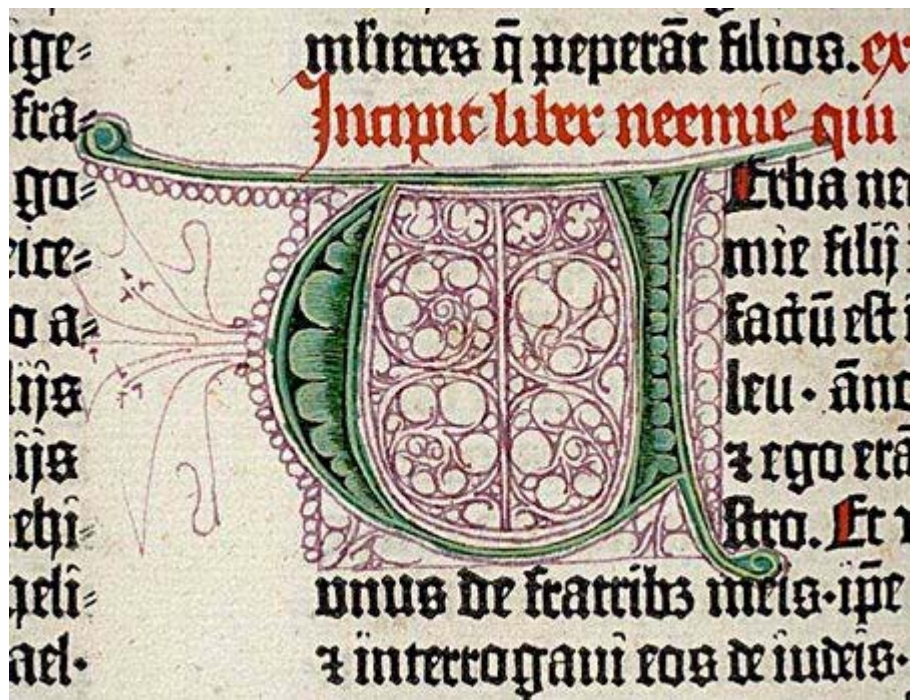 ge=
fra=
go=
ice=
o a=
lijs
ijs
ehi=
eli=
ael·
ml'ieres q̄ peperāt filios. ex
Incipit liber neemie qui
VErba ne
mie filij
factū est i
leu· āno
⁊ ego erā
stro. Et
vnus de fratribꝫ meis·ip̄e
⁊ interrogaui eos de iudeis·